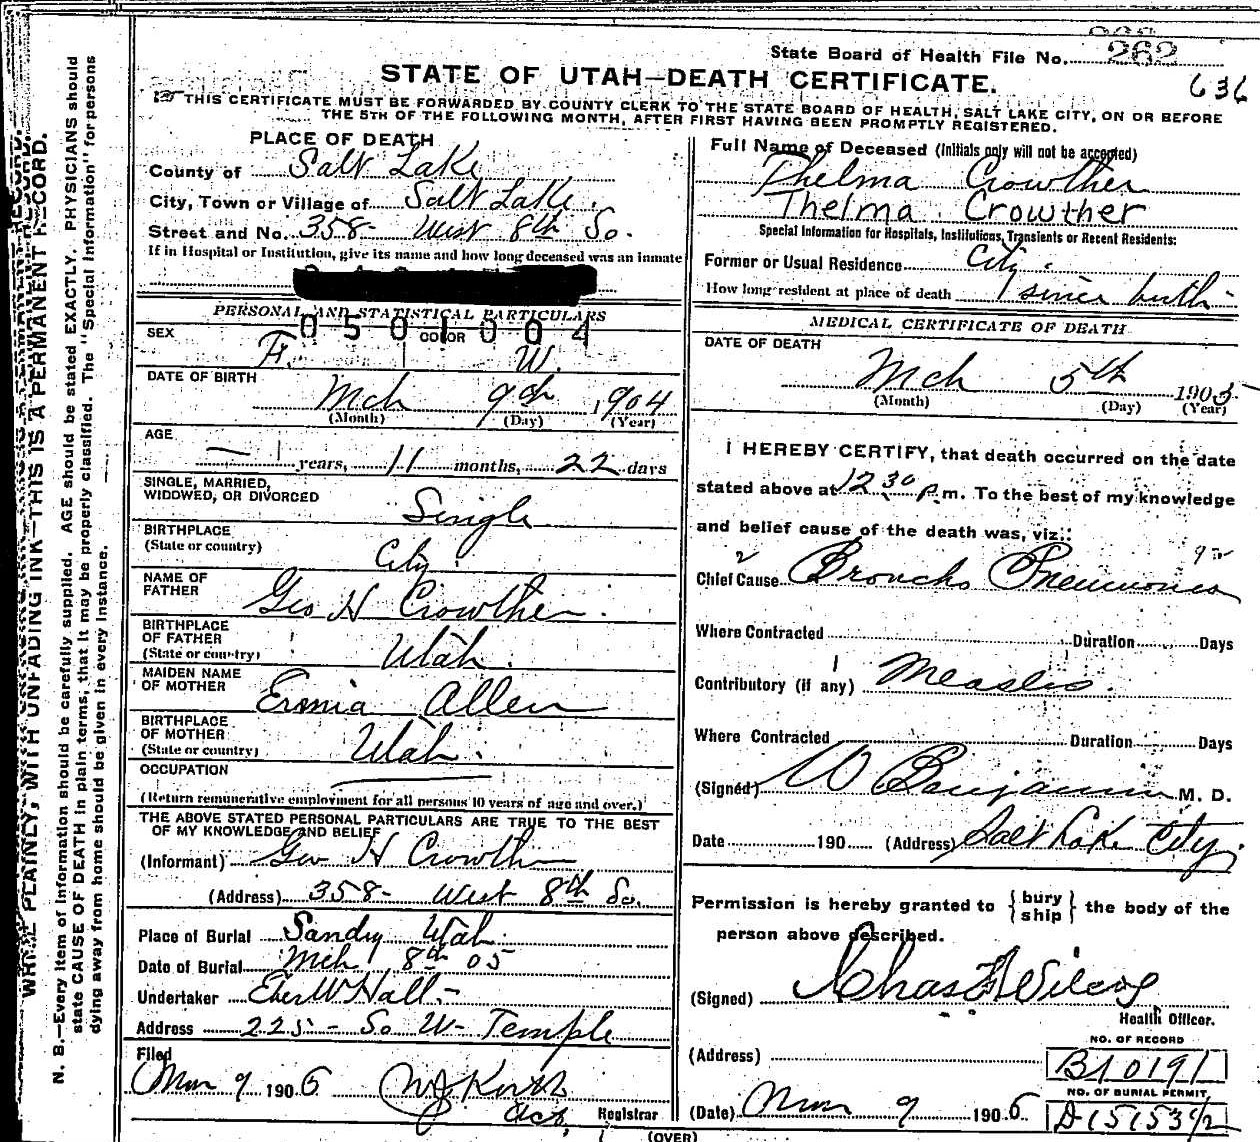 State Board of Health File No. 262
636
STATE OF UTAH—DEATH CERTIFICATE.
THIS CERTIFICATE MUST BE FORWARDED BY COUNTY CLERK TO THE STATE BOARD OF HEALTH, SALT LAKE CITY, ON OR BEFORE
THE 5TH OF THE FOLLOWING MONTH, AFTER FIRST HAVING BEEN PROMPTLY REGISTERED.
WRITE PLAINLY, WITH UNFADING INK—THIS IS A PERMANENT RECORD.
N. B.—Every item of information should be carefully supplied. AGE should be stated EXACTLY. PHYSICIANS should
state CAUSE OF DEATH in plain terms, that it may be properly classified. The "Special Information" for persons
dying away from home should be given in every instance.
PLACE OF DEATH
County of Salt Lake
City, Town or Village of Salt Lake.
Street and No. 358- West 8th So.
If in Hospital or Institution, give its name and how long deceased was an inmate
PERSONAL AND STATISTICAL PARTICULARS
0501004
SEX F. COLOR W.
DATE OF BIRTH Mch 9th 1904
(Month) (Day) (Year)
AGE
— years, 11 months, 22 days
SINGLE, MARRIED,
WIDOWED, OR DIVORCED Single
BIRTHPLACE
(State or country) City.
NAME OF
FATHER Geo H Crowther.
BIRTHPLACE
OF FATHER
(State or country) Utah.
MAIDEN NAME
OF MOTHER Allen
BIRTHPLACE
OF MOTHER
(State or country) Utah.
OCCUPATION
(Return remunerative employment for all persons 10 years of age and over.)
THE ABOVE STATED PERSONAL PARTICULARS ARE TRUE TO THE BEST
OF MY KNOWLEDGE AND BELIEF
(Informant) Geo H Crowther
(Address) 358- West 8th So.
Place of Burial Sandy Utah.
Date of Burial Mch 8th 05
Undertaker Eber W Hall.-
Address 225- So W- Temple
Filed
Mar 9 1905
Registrar
Full Name of Deceased (Initials only will not be accepted)
Thelma Crowther
Thelma Crowther
Special Information for Hospitals, Institutions, Transients or Recent Residents:
Former or Usual Residence City.
How long resident at place of death since birth
MEDICAL CERTIFICATE OF DEATH
DATE OF DEATH
Mch 5th 1905
(Month) (Day) (Year)
I HEREBY CERTIFY, that death occurred on the date
stated above at 12 30 p.m. To the best of my knowledge
and belief cause of the death was, viz.:
Chief Cause Broncho Pneumonia
Where Contracted Duration Days
Contributory (if any) Measles.
Where Contracted Duration Days
(Signed) W Benjamin M. D.
Date 190 (Address) Salt Lake City.
Permission is hereby granted to { bury ship } the body of the
person above described.
(Signed) Chas F Wilcox
Health Officer.
(Address)
NO. OF RECORD
B10191
NO. OF BURIAL PERMIT
D15153 1/2
(Date) Mar 9 1905
(OVER)